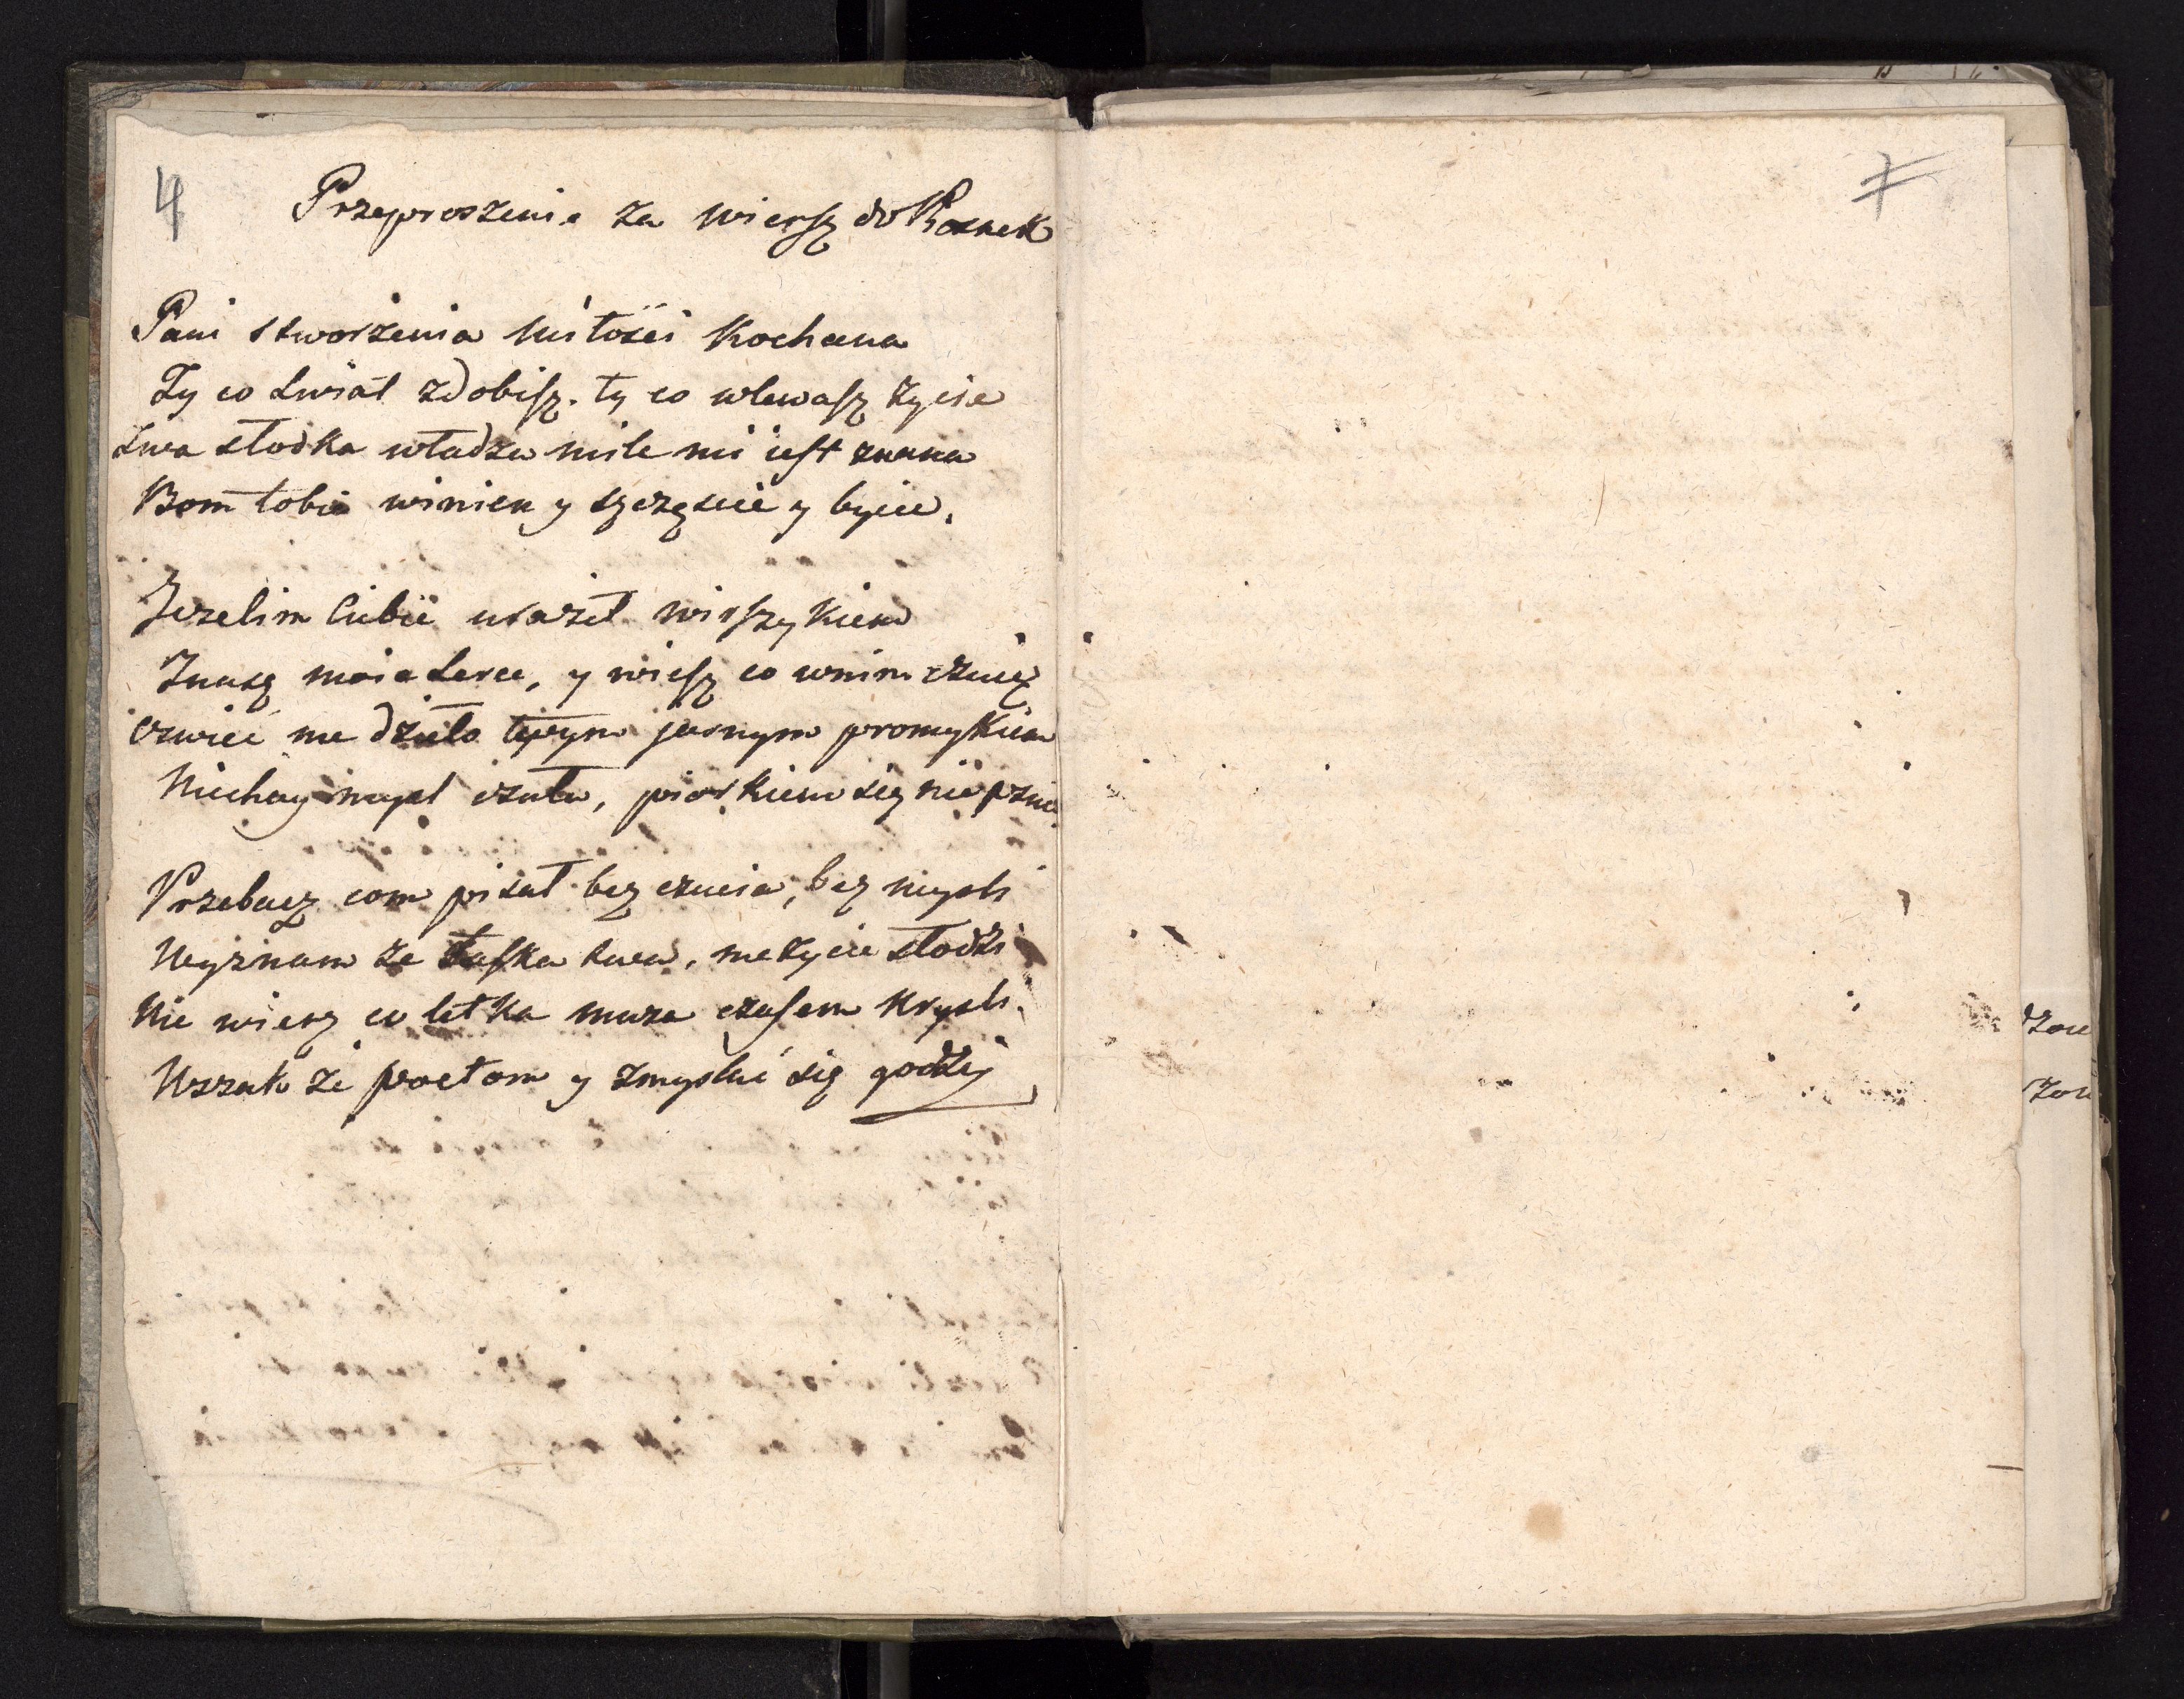 4
Przeproszenie za wiersz do Kosnek
Pani stworzenia miłości kochana
Ty co świat zdobisz. ty co wlewasz życie
Twa słodka władza mile mi iest znana
Bom tobie winien y szczęscie y bycie.
Jezelim Ciebie uraził wirszykiem
Znasz moie serce, y wiesz co wnim czuię
Ozwieć me dzieło twym jasnym promykiem
Niechay mysl czuła, piorkiem się nie
Przebacz com pisał bez czucia, bez mysli
Wyznam ze łaska twa, me życie słodzi
Nie wierz co letka muza czasem krysli.
Wszak że poetom y zmyslić się godzi
7